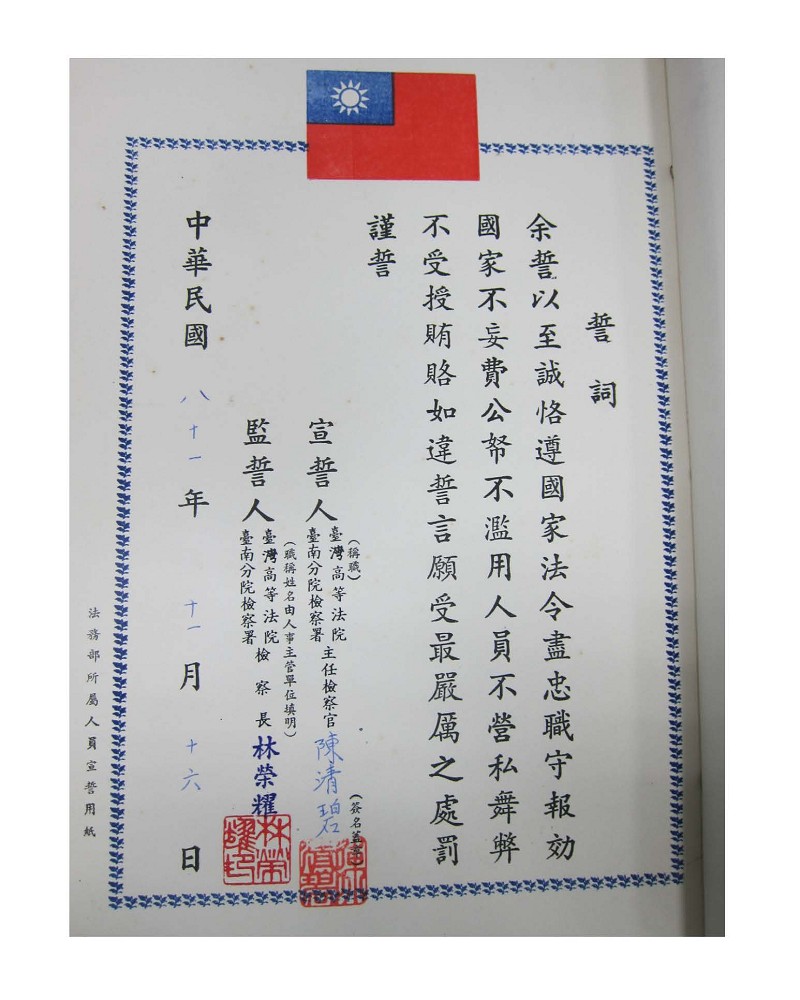 誓詞
余誓以至誠恪遵國家法令盡忠職守報効
國家不妄費公帑不濫用人員不營私舞弊
不受授賄賂如違誓言願受最嚴厲之處罰
謹誓
(稱職)
宣誓人臺灣高等法院臺南分院檢察署主任檢察官陳清碧
(簽名蓋章)
(職稱姓名由人事主管單位填明)
監誓人臺灣高等法院臺南分院檢察署檢察長林榮耀
林榮耀印
中華民國八十一年十一月十六日
法務部所屬人員宣誓用紙